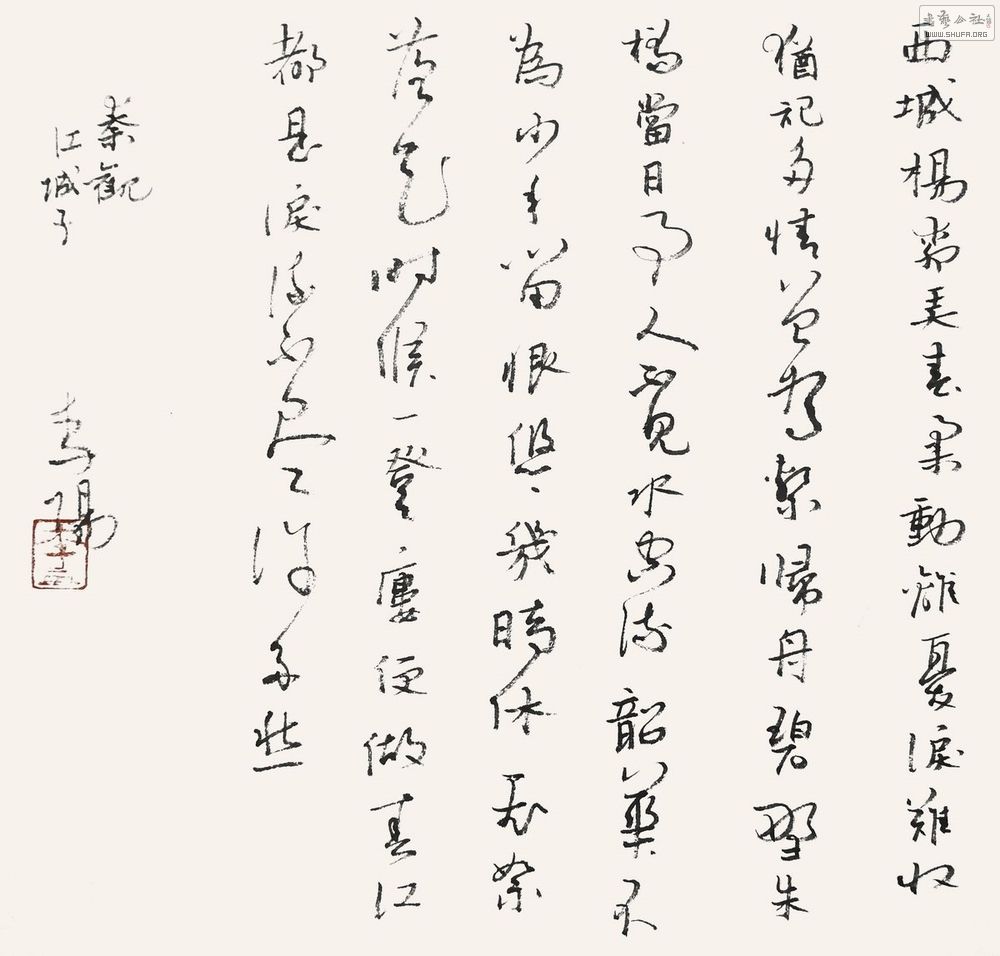 西城楊柳弄春柔動離憂淚難收
猶記多情曾為繫歸舟碧野朱
橋當日事人不見水空流韶華不
為少年留恨悠〻幾時休飛絮
落花時候一登樓便做春江
都是淚流不盡許多愁
秦觀
江城子
WWW.SHUFA.ORG